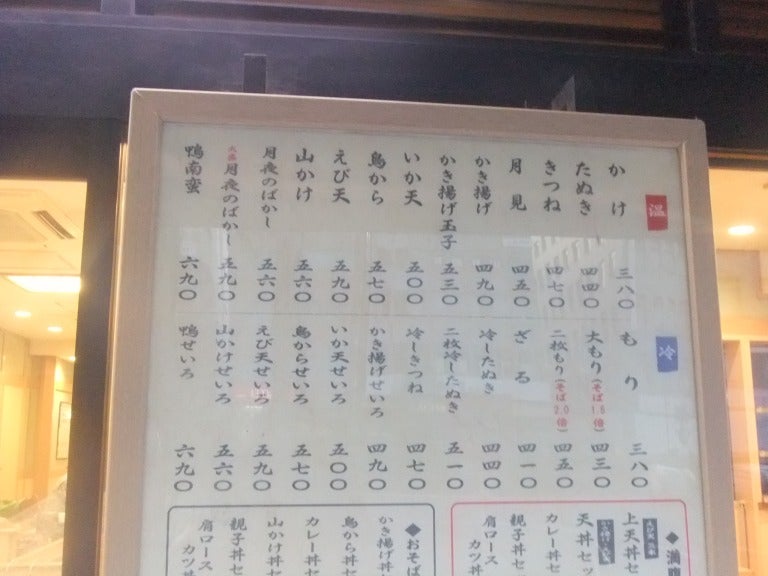 温
かけ 三八〇
たぬき 四四〇
きつね 四七〇
月見 四五〇
かき揚げ 四九〇
かき揚げ玉子 五三〇
いか天 五〇〇
鳥から 五七〇
えび天 五九〇
山かけ 五六〇
月夜のばかし 五六〇
大盛 月夜のばかし 五九〇
鴨南蛮 六九〇
冷
もり 三八〇
大もり(そば1.5倍) 四三〇
二枚もり(そば2.0倍) 四五〇
ざる 四一〇
冷したぬき 四四〇
二枚冷したぬき 五一〇
冷しきつね 四七〇
かき揚げせいろ 四九〇
いか天せいろ 五〇〇
鳥からせいろ 五七〇
えび天せいろ 五九〇
山かけせいろ 五六〇
鴨せいろ 六九〇
◆満腹
上天丼セ
天丼セッ
カレー丼セ
親子丼セ
肩ロース
カツ丼
◆おそば
かき揚げ丼セ
鳥から丼セ
カレー丼セ
山かけ丼セ
親子丼セ
肩ロース
カツ丼